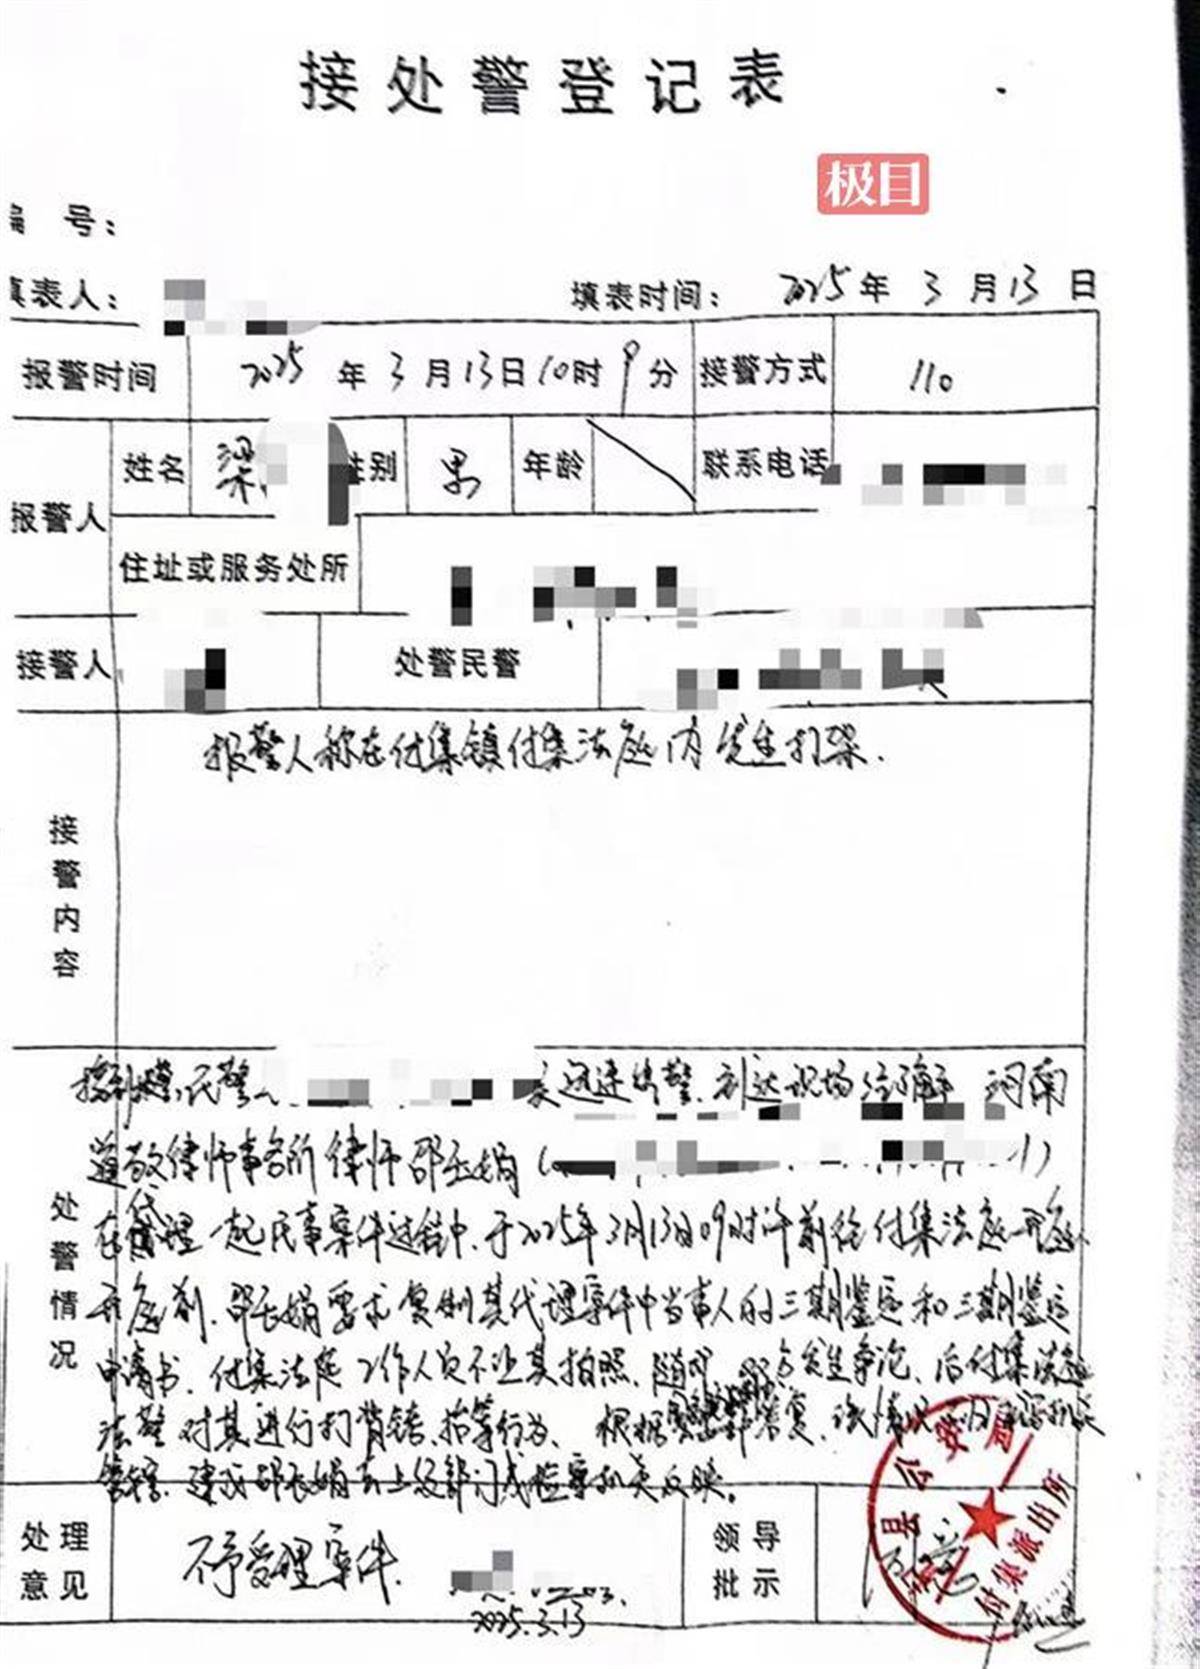 接处警登记表
极目
编 号：
填表人：
填表时间： 2025年3月13日
报警时间 2025年3月13日10时9分 接警方式 110
报警人 姓名 梁 性别 男 年龄 联系电话
住址或服务处所
接警人 处警民警
接警内容
报警人称在付集镇付集法庭内发生打架.
处警情况
接到报警,民警 迅速出警,到达现场经了解 河南
道敬律师事务所律师邵 娟（ ）
在代理一起民事案件过程中,于2025年3月13日09时许前往付集法庭开庭
开庭前,邵 娟要求复制其代理案件中当事人的三期鉴定和三期鉴定
申请书,付集法庭工作人员不让其拍照,随即 双方发生争论,后付集法庭
法警对其进行打背铐、掐等行为. 根据 答复,该情况 公安机关
管辖.建议邵 娟去上级部门或检察机关反映。
处理意见 不予受理案件.
2025.3.13
领导批示
县公安局
付集派出所